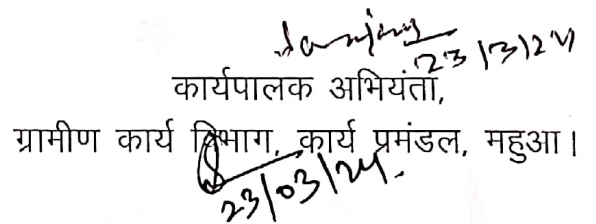 23/3/24
कार्यपालक अभियंता,
ग्रामीण कार्य विभाग, कार्य प्रमंडल, महुआ।
23/03/24.